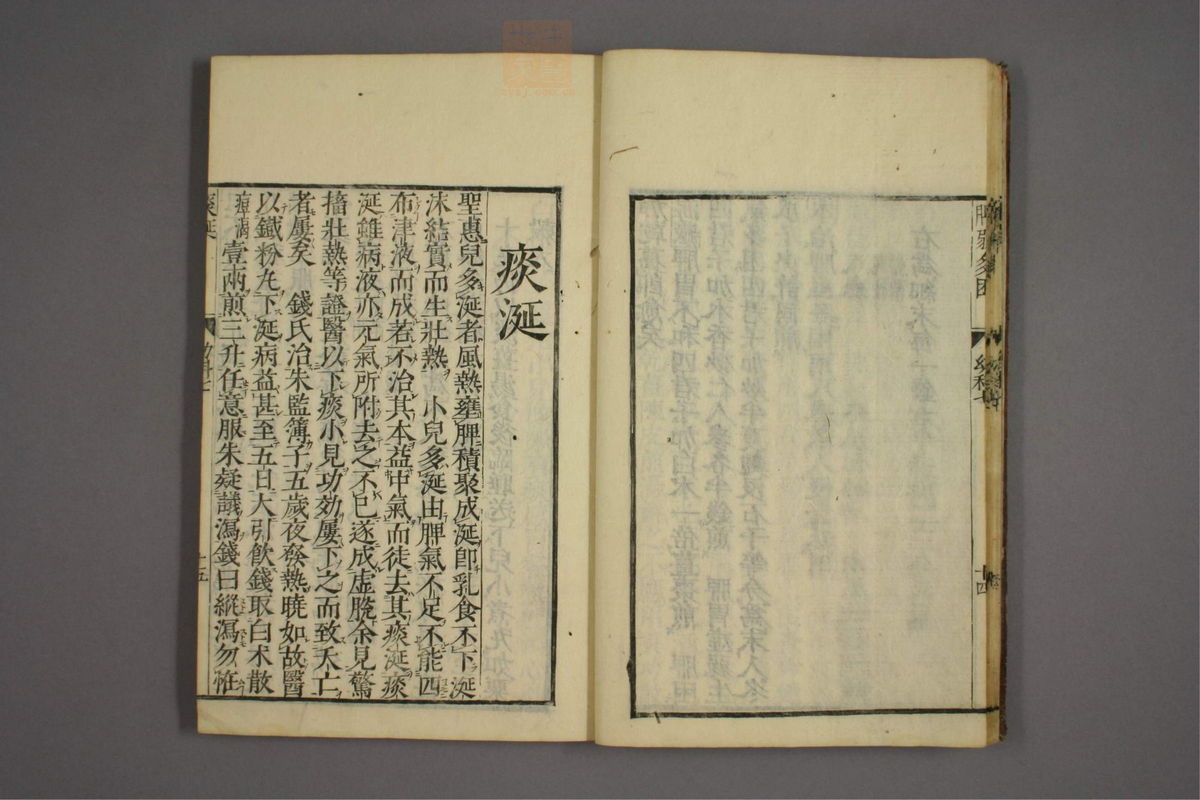 脾弱多困
幼科七
十四
痰涎
聖惠兒多涎者風熱壅脾積聚成涎卽乳食不下涎
沫結實而生壯熱　小兒多涎由脾氣不足不能四
布津液而成若不治其本益中氣而徒去其痰涎痰
涎雖病液亦元氣所附去之不已遂成虛脫余見驚
搐壯熱等證醫以下痰小見功効屢下之而致夭亡
者屢矣　錢氏治朱監簿子五歲夜發熱曉如故醫
以鐵粉丸下涎病益甚至五日大引飮錢取白木散
壹兩煎三升任意服朱疑議瀉錢曰縱瀉勿恠
痰涎
幼科七
十五